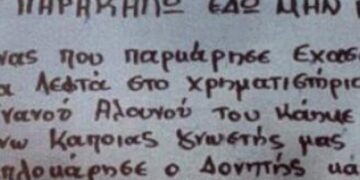 ΠΑΡΑΚΑΛΩ ΕΔΩ ΜΗΝ
νας που παρκάρησε έχασε
α Λεφτά στο χρηματιστήριο
νανού Αλουνού του κάηκε
νω Κάποιας γνωστής μας
πλοκάρησε ο Δονητής κα